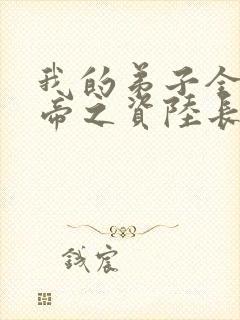 我的弟子全
帝之資陸長
鋮宸